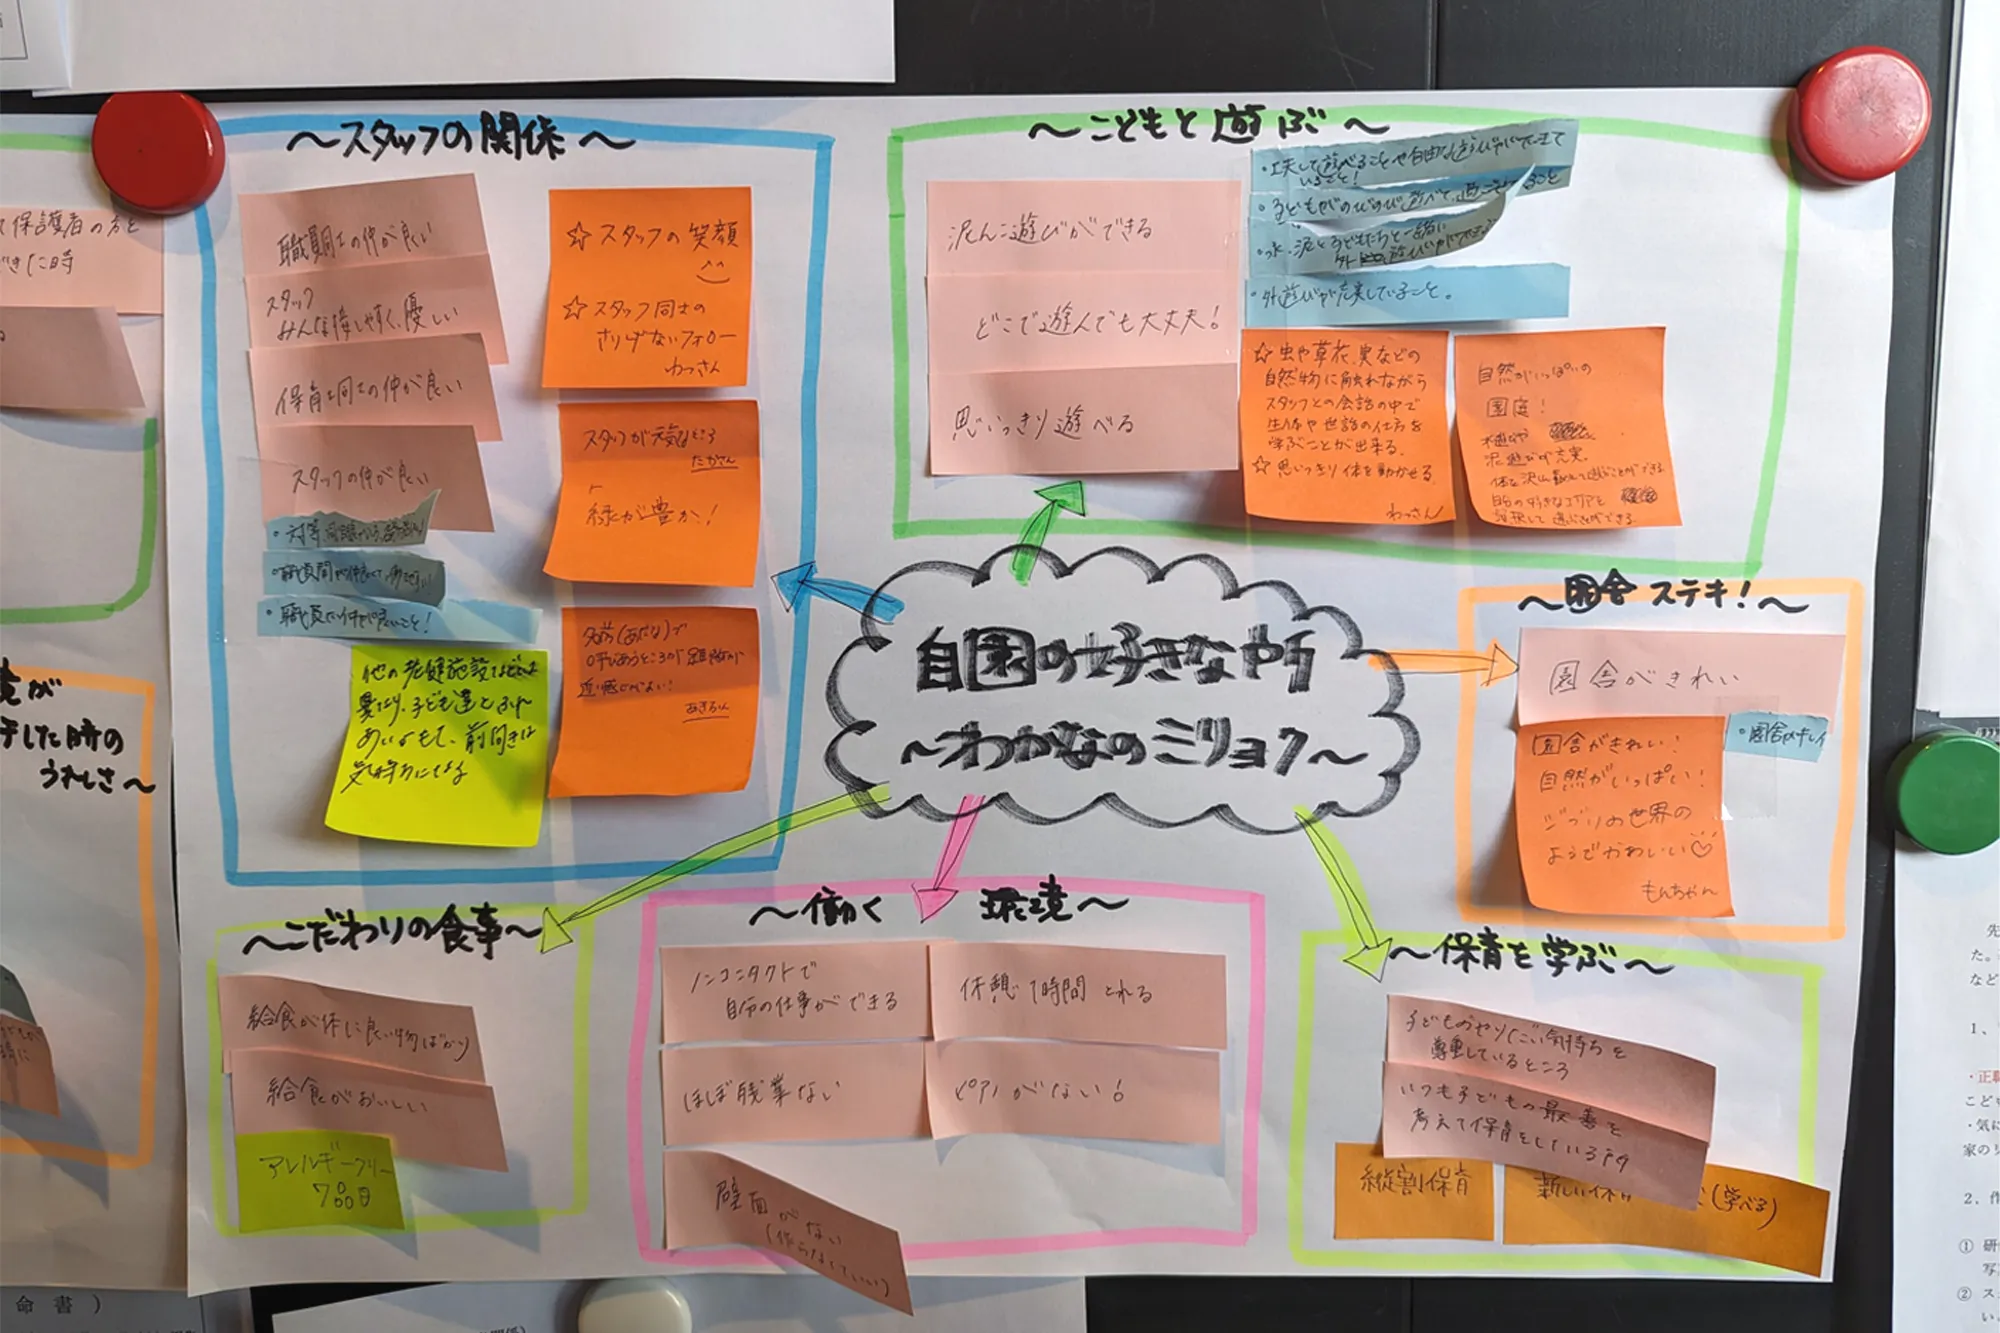 自園の好きな所
～わかなのミリョク～
～スタッフの関係～
職員同士の仲が良い
スタッフ
みんな接しやすく、優しい
保育士同士の仲が良い
スタッフの仲が良い
・対等
・職員間が仲良くて、
・職員の仲が良いこと!
☆スタッフの笑顔
☆スタッフ同士の
さりげないフォロー
わっさん
スタッフが元気なところ
たかさん
緑が豊か!
名前(あだな)で
呼びあうところが距離が
近い感じがよい!
あきちゃん
他の
異なり、子ども達とふれ
あいがもて、前向きな
気持ちになる
～こどもと遊ぶ～
泥んこ遊びができる
どこで遊んでも大丈夫!
思いっきり遊べる
・工夫して遊べることや自由な遊び
いること!
・子どもがのびのび遊べて、過ごせること
・水、泥と子どもたちと一緒に
・外遊びが充実していること。
☆虫や草花、実などの
自然物に触れながら
スタッフとの会話の中で
生体や世話の仕方を
学ぶことが出来る。
☆思いっきり体を動かせる。
わっさん
自然がいっぱいの
園庭!
泥遊びが充実。
体を沢山動かして遊ぶことができる
自分の好きなエリアを
選択して遊ぶことができる。
～園舎ステキ!～
園舎がきれい
・園舎がキレイ
園舎がきれい!
自然がいっぱい!
ジブリの世界の
ようでかわいい♡
もんちゃん
～こだわりの食事～
給食が体に良い物ばかり
給食がおいしい
アレルギーフリー
7品目
～働く環境～
ノンコンタクトで
自分の仕事ができる
休憩1時間とれる
ほぼ残業ない
ピアノがない!
壁面がない
(作らなくていい)
～保育を学ぶ～
子どものやりたい気持ちを
尊重しているところ
いつも子どもの最善を
考えて保育をしている所
縦割保育
新しい保育
(学べる)
保護者の方と
できた時
した時の
うれしさ～
命書)